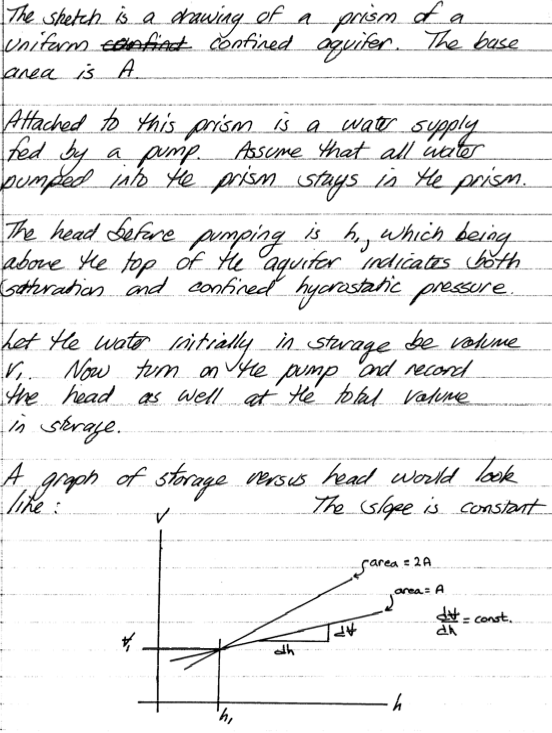 The sketch is a drawing of a prism of a
uniform confind confined aquifer. The base
area is A
Attached to this prism is a water supply
fed by a pump. Assume that all water
pumped into the prism stays in the prism.
The head before pumping is h₁, which being
above the top of the aquifer indicates both
saturation and confined hydrostatic pressure.
Let the water initially in storage be volume
V₁. Now turn on the pump and record
the head as well at the total volume
in storage.
A graph of storage versus head would look
like: The slope is constant
V
area = 2A
area = A
dV/dh = const.
V₁
dV
dh
h
h₁